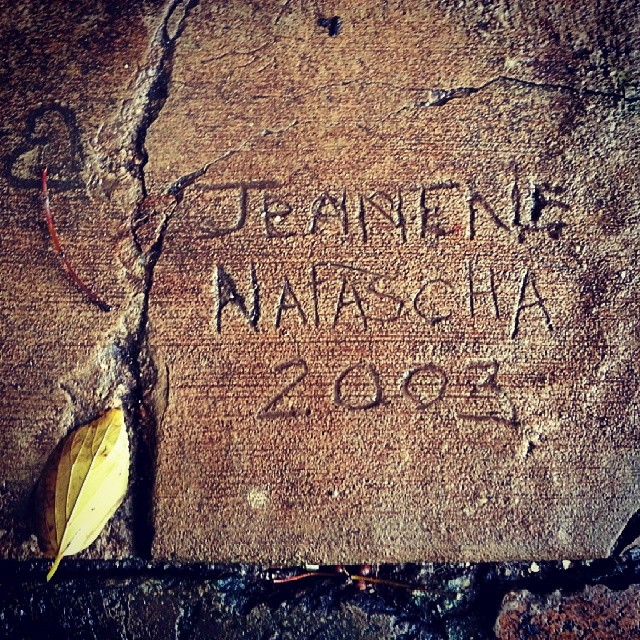 JEANENE
NATASCHA
2003